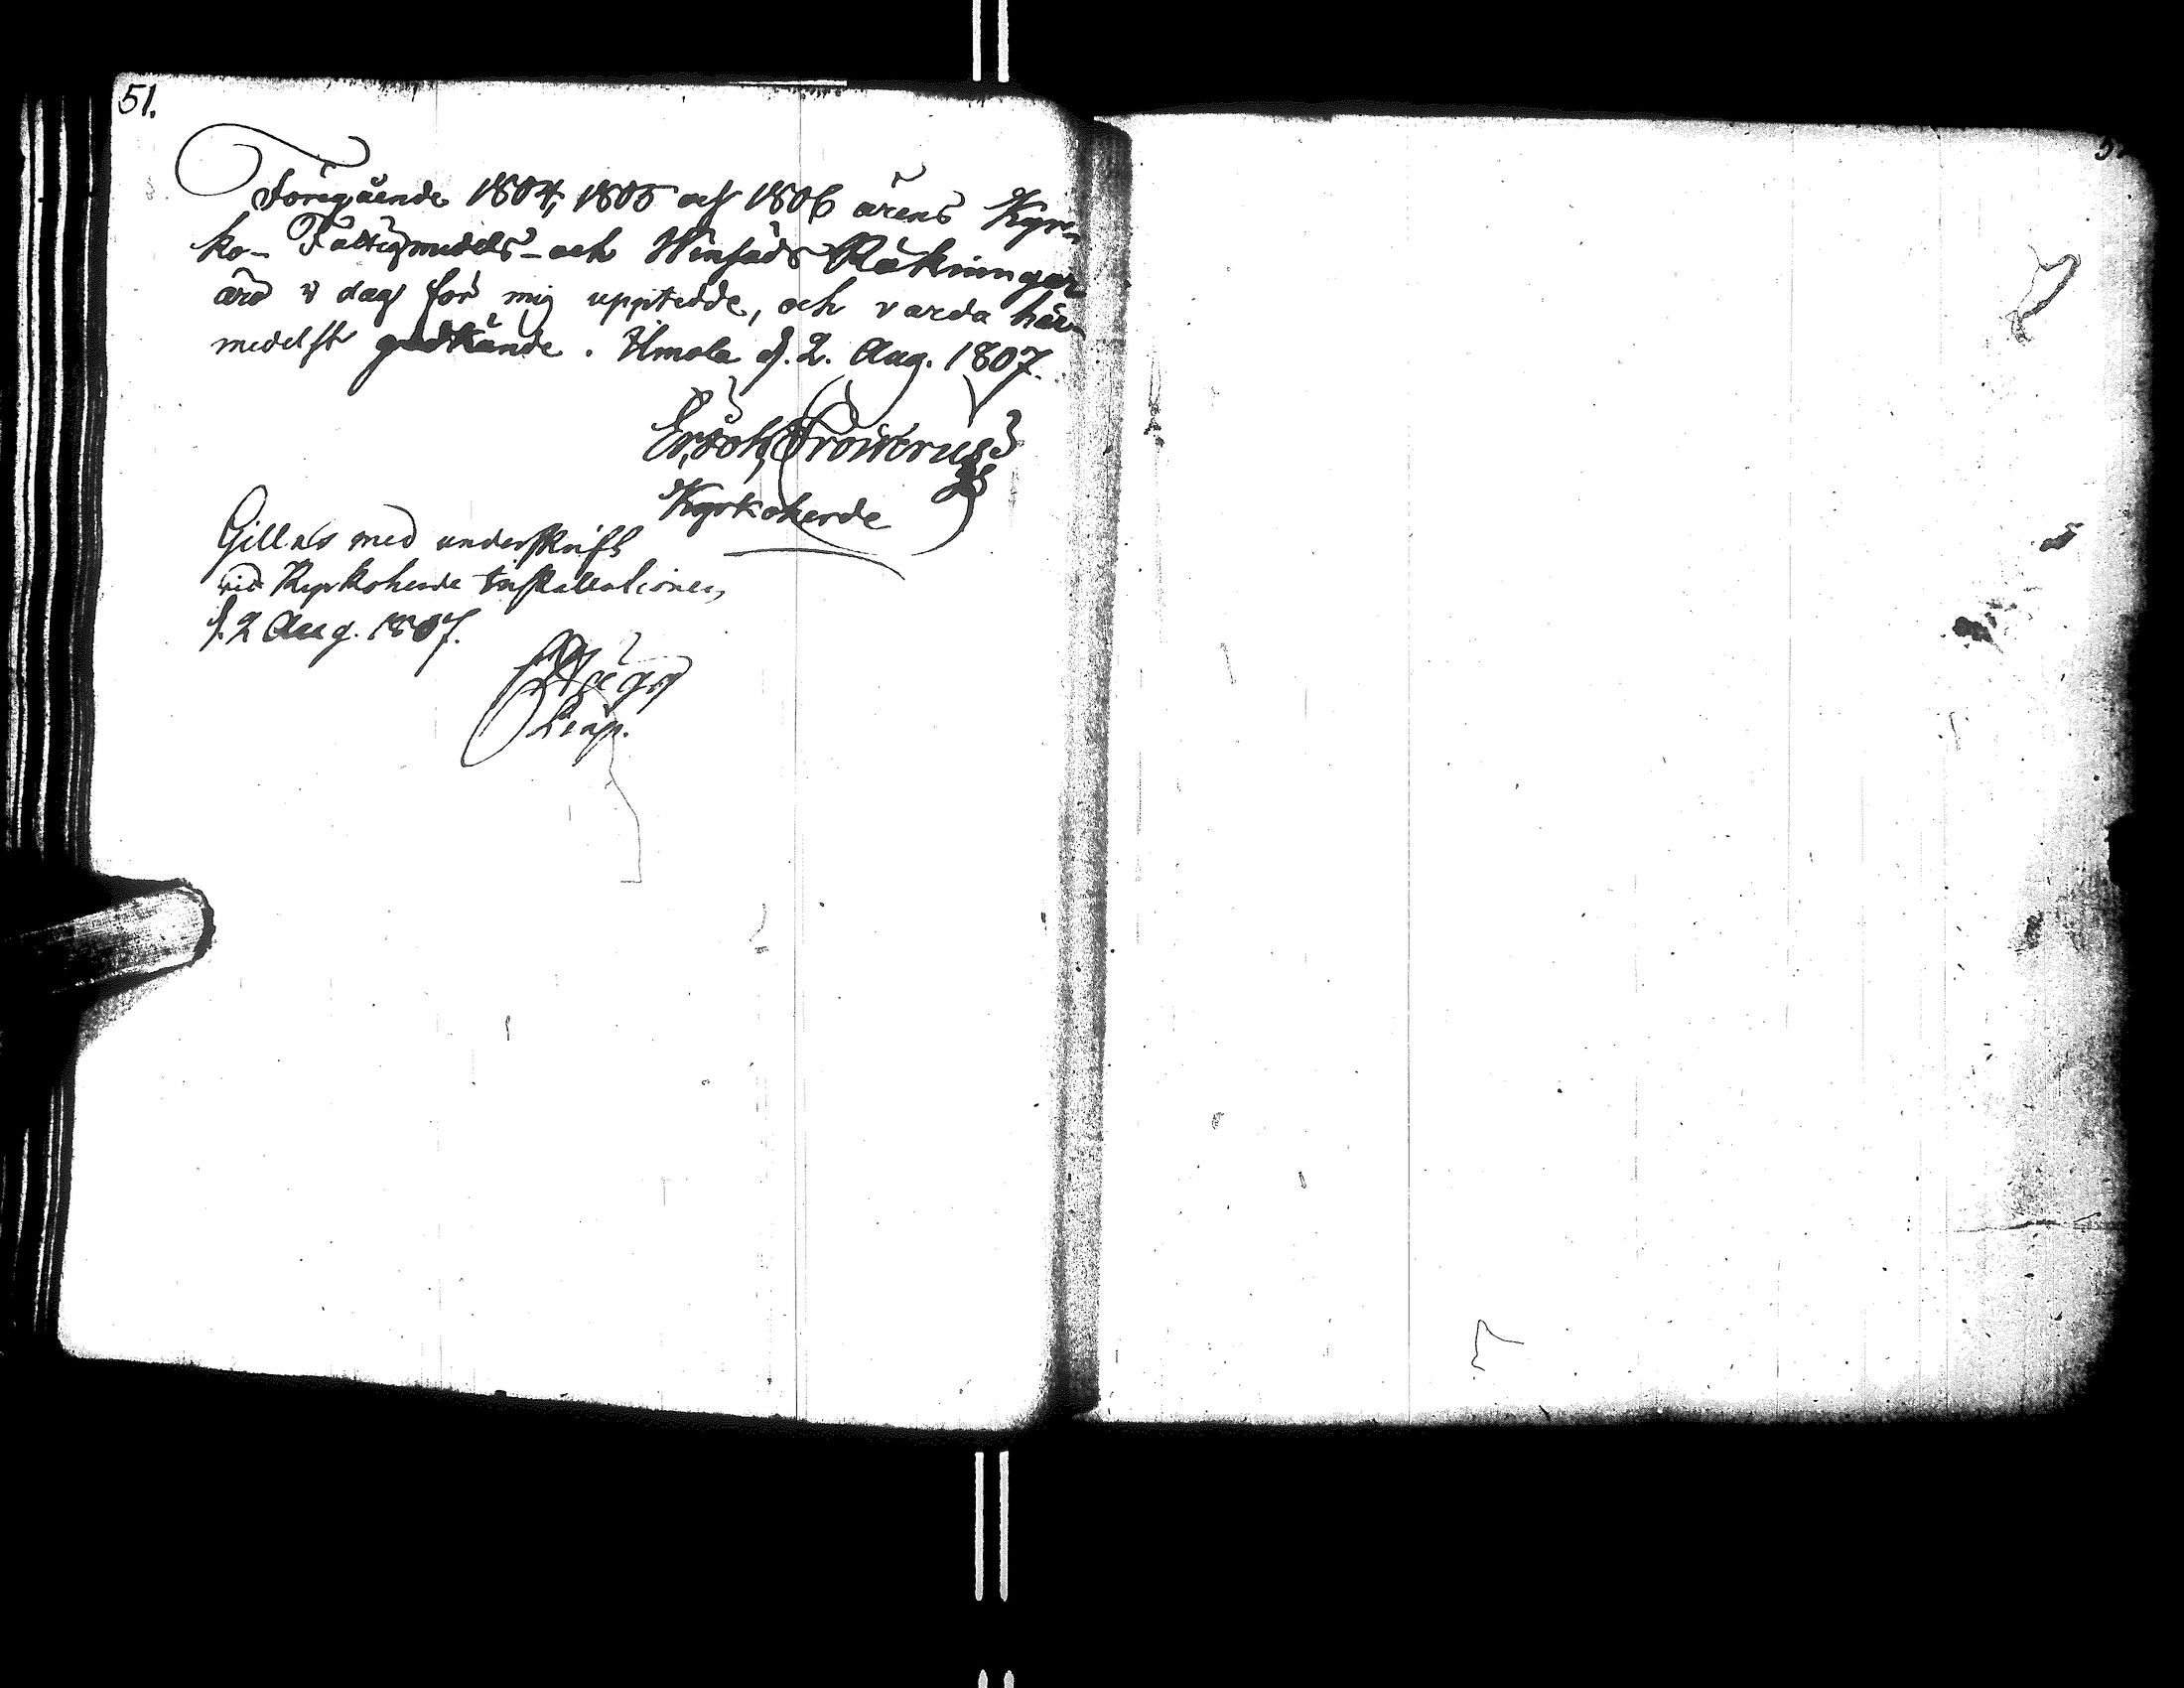 51.
Föregående 1804, 1805 och 1806 årens Kyr-
ko- Fattigmedels- och Winsäds Räkningar
äro i dag för mig upptedde, och varda här-
medelst godkände. Ilmola d. 2. Aug. 1807.
Er. Joh. Frosterus
Kyrkoherde
Gillas med underskrift
vid Kyrkoherde Installationen,
d. 2 Aug. 1807.